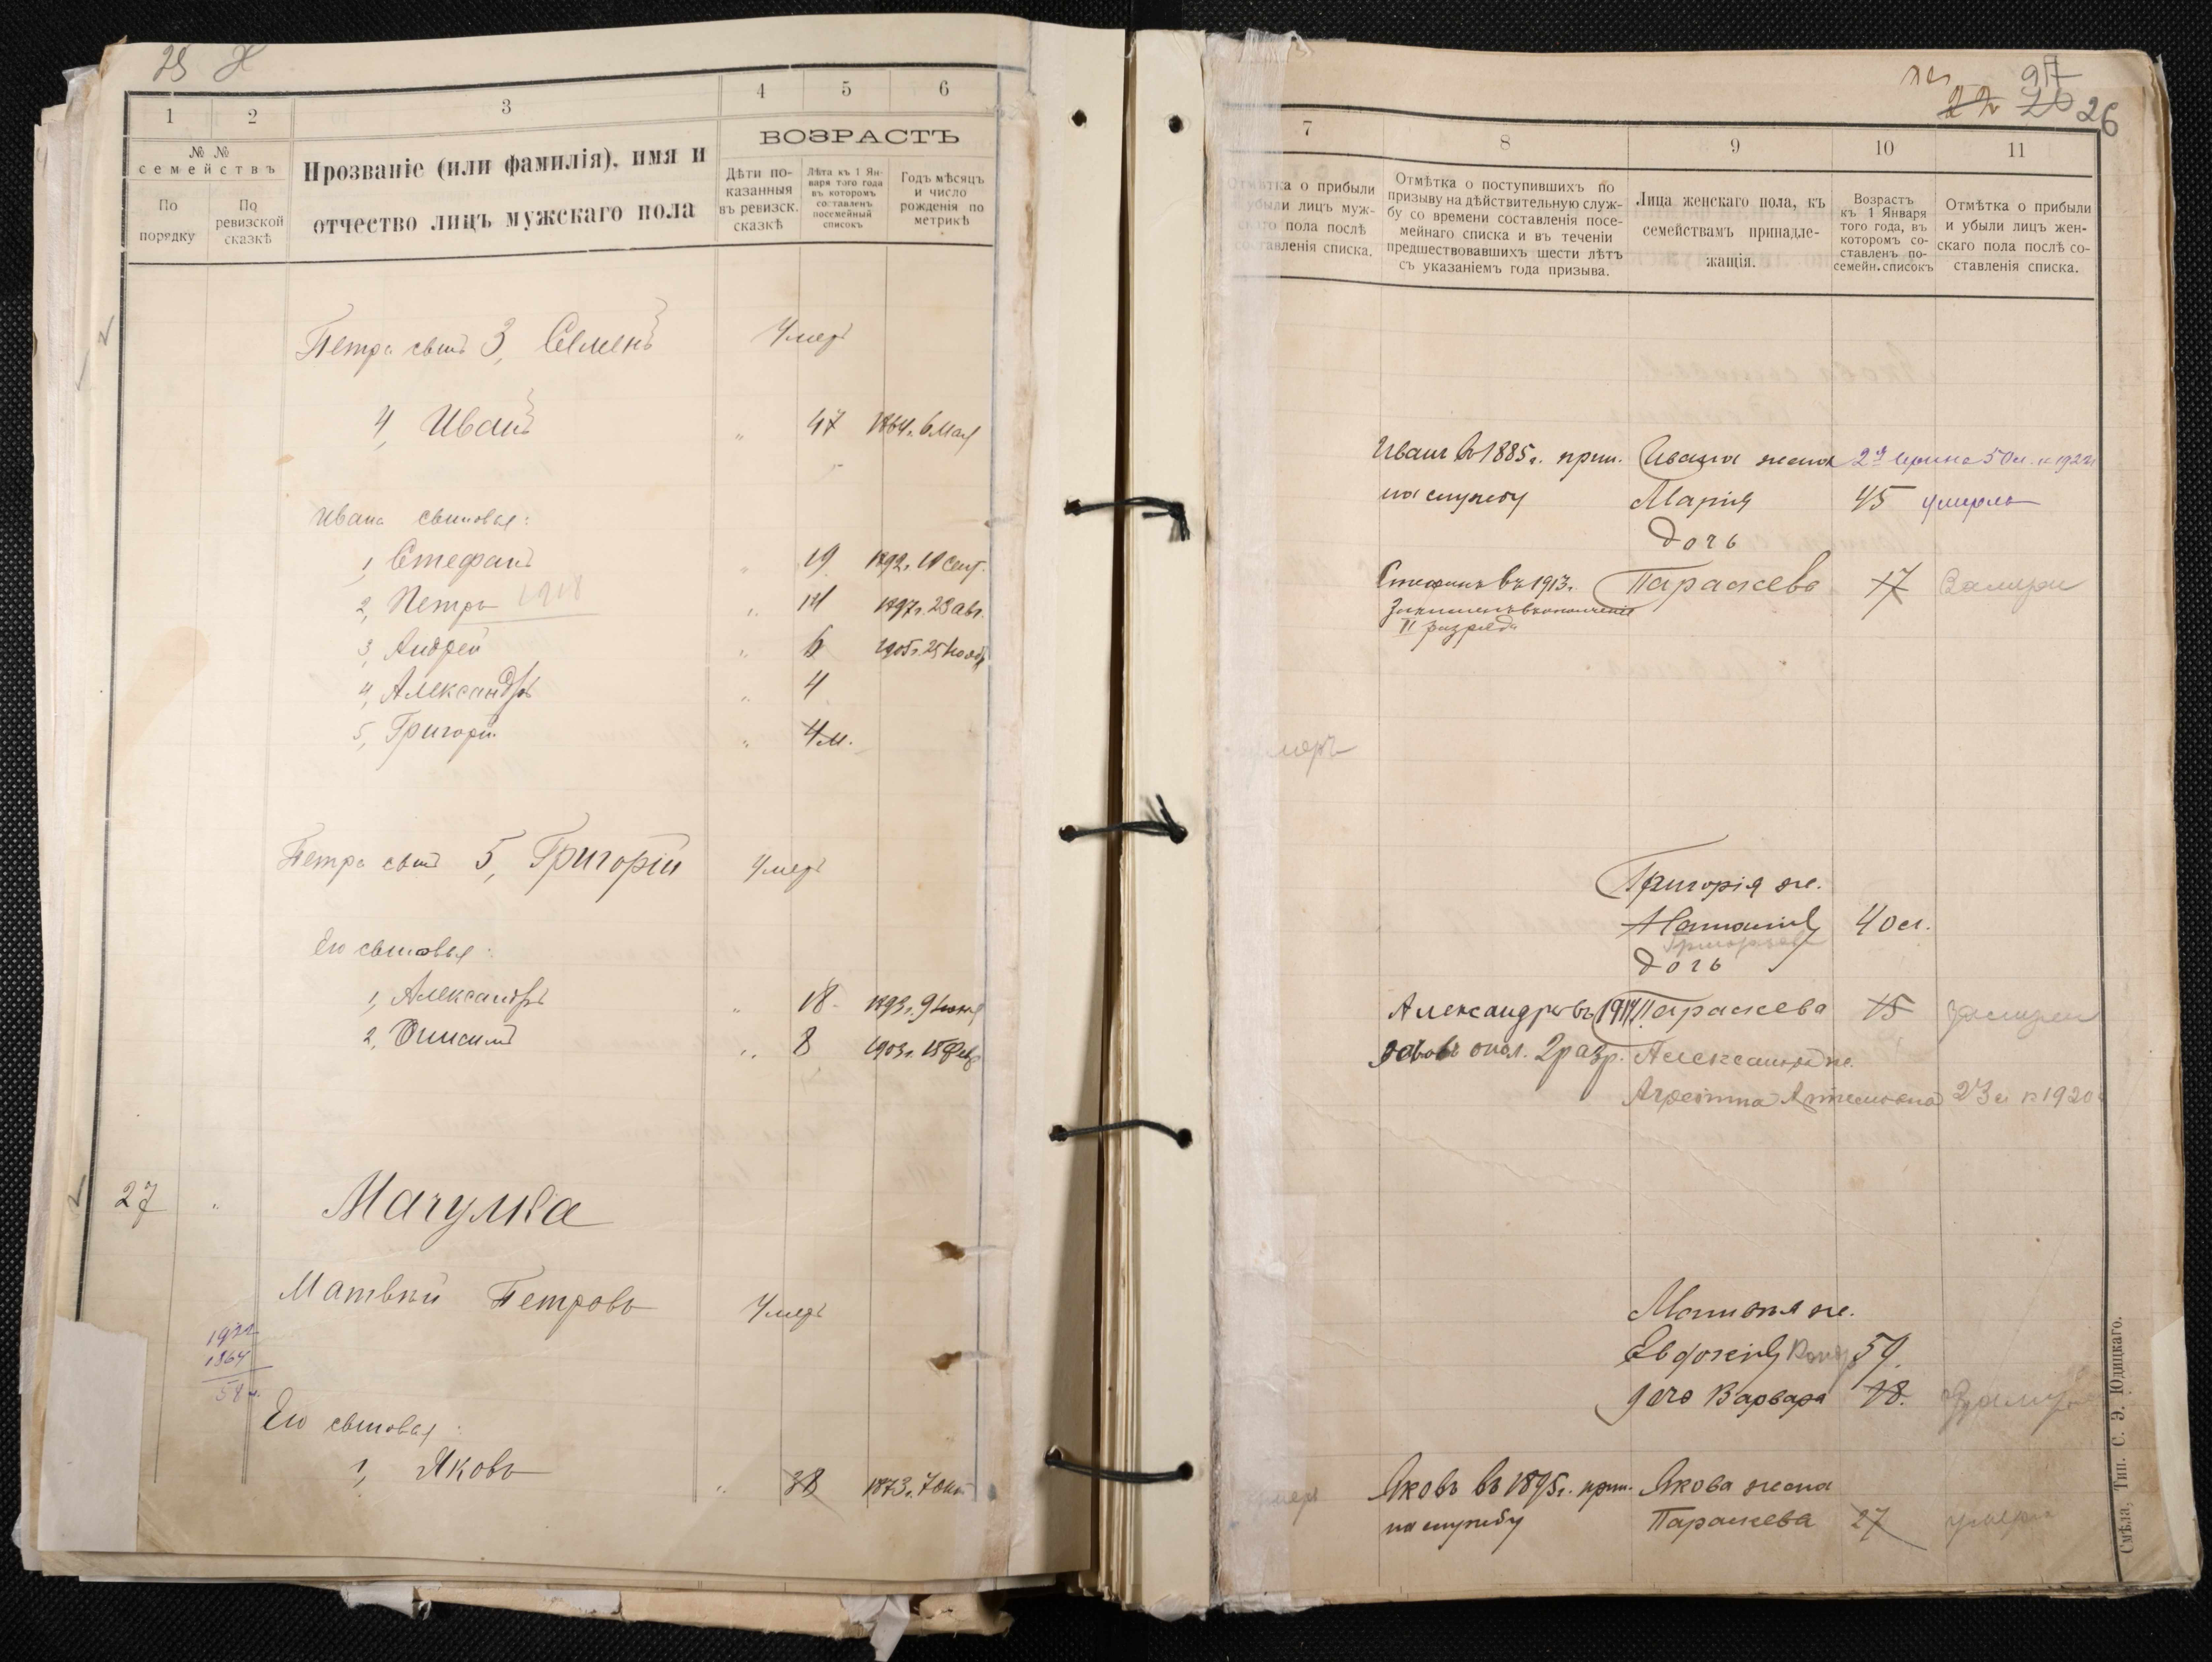 1
2
3
4
5
6
№ №
семействъ
По порядку
По ревизской сказкѣ
Прозваніе (или фамилія), имя и
отчество лицъ мужскаго пола
ВОЗРАСТЪ
Дѣти по-
казанныя
въ ревизск.
сказкѣ
Лѣта къ 1 Ян-
варя того года
въ которомъ
составленъ
посемейный
списокъ
Годъ мѣсяцъ
и число
рожденія по
метрикѣ
Петра сынъ 3, Семенъ Умеръ
4, Иванъ " 47 1864 г. 6 Мая
Ивана сыновья:
1, Стефанъ " 19 1892 г. 19 Сент.
2, Петръ 1918 " 14 1897 г. 23 авг.
3, Андрей " 6 1905 г. 25 Нояб
4, Александръ " 4
5, Григорій " 4 м.
Петра сынъ 5, Григорій Умеръ
Его сыновья:
1, Александръ " 18 1893 г. 9 Іюня
2, Онисимъ " 8 1903 г. 15 Февр
27 " Мачулка
Матвѣй Петровъ Умеръ
1922
1864
58
Его сыновья:
1, Яковъ " 38 1873 г. 7 Окт
26
7
8
9
10
11
Отмѣтка о прибыли
и убыли лицъ муж-
скаго пола послѣ
составленія списка.
Отмѣтка о поступившихъ по
призыву на дѣйствительную служ-
бу со времени составленія посе-
мейнаго списка и въ теченіи
предшествовавшихъ шести лѣтъ
съ указаніемъ года призыва.
Лица женскаго пола, къ
семействамъ принадле-
жащія.
Возрастъ
къ 1 Января
того года, въ
которомъ со-
ставленъ по-
семейн. списокъ
Отмѣтка о прибыли
и убыли лицъ жен-
скаго пола послѣ со-
ставленія списка.
Иванъ въ 1885 г. прин. Ивана жена 2я Ирина 50 л. к 1922
на службу Марія 45 умерла
дочь
Стефанъ въ 1913 г. Параскева 17 Замужем
Зачисленъ в ополченіе
II разряда
умеръ
Григорія ж.
Наталія 40 л.
Григорьева
дочь
Александръ въ 1914 Параскева 15 замужем
опол. 2 разр. Александра ж.
Агрепина Артемовна 23 л к 1920
Матвѣя ж.
Евфохія 59.
дочь Варвара 18. Замуж
умеръ Яковъ въ 1895 г. прин. Якова жена
на службу Параскева 27 умерла
Смѣла, Тип. С. Э. Юдицкаго.